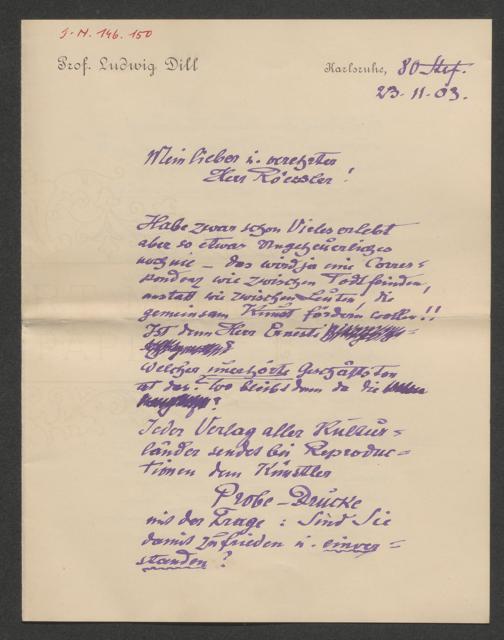 J.-N. 146.150
Prof. Ludwig Dill
Karlsruhe, 80 Stef.
23.11.03.
Mein lieber u. verehrter
Herr Roessler!
Habe zwar schon Vieles erlebt
aber so etwas Ungeheuerliches
noch nie – das wird ja eine Corres-
pondenz wie zwischen Todfeinden,
anstatt wie zwischen Leuten, die
gemeinsam Kunst fördern wollen!!
Ist denn Herr Ernesti
Welcher unerhörte Geschäftston
ist das? Wo bleibt denn da die
?
Jeder Verlag aller Kultur=
länder sendet bei Reproduc=
tionen dem Künstler
Probe-Drucke
mit der Frage: Sind Sie
damit zufrieden u. einver=
standen?